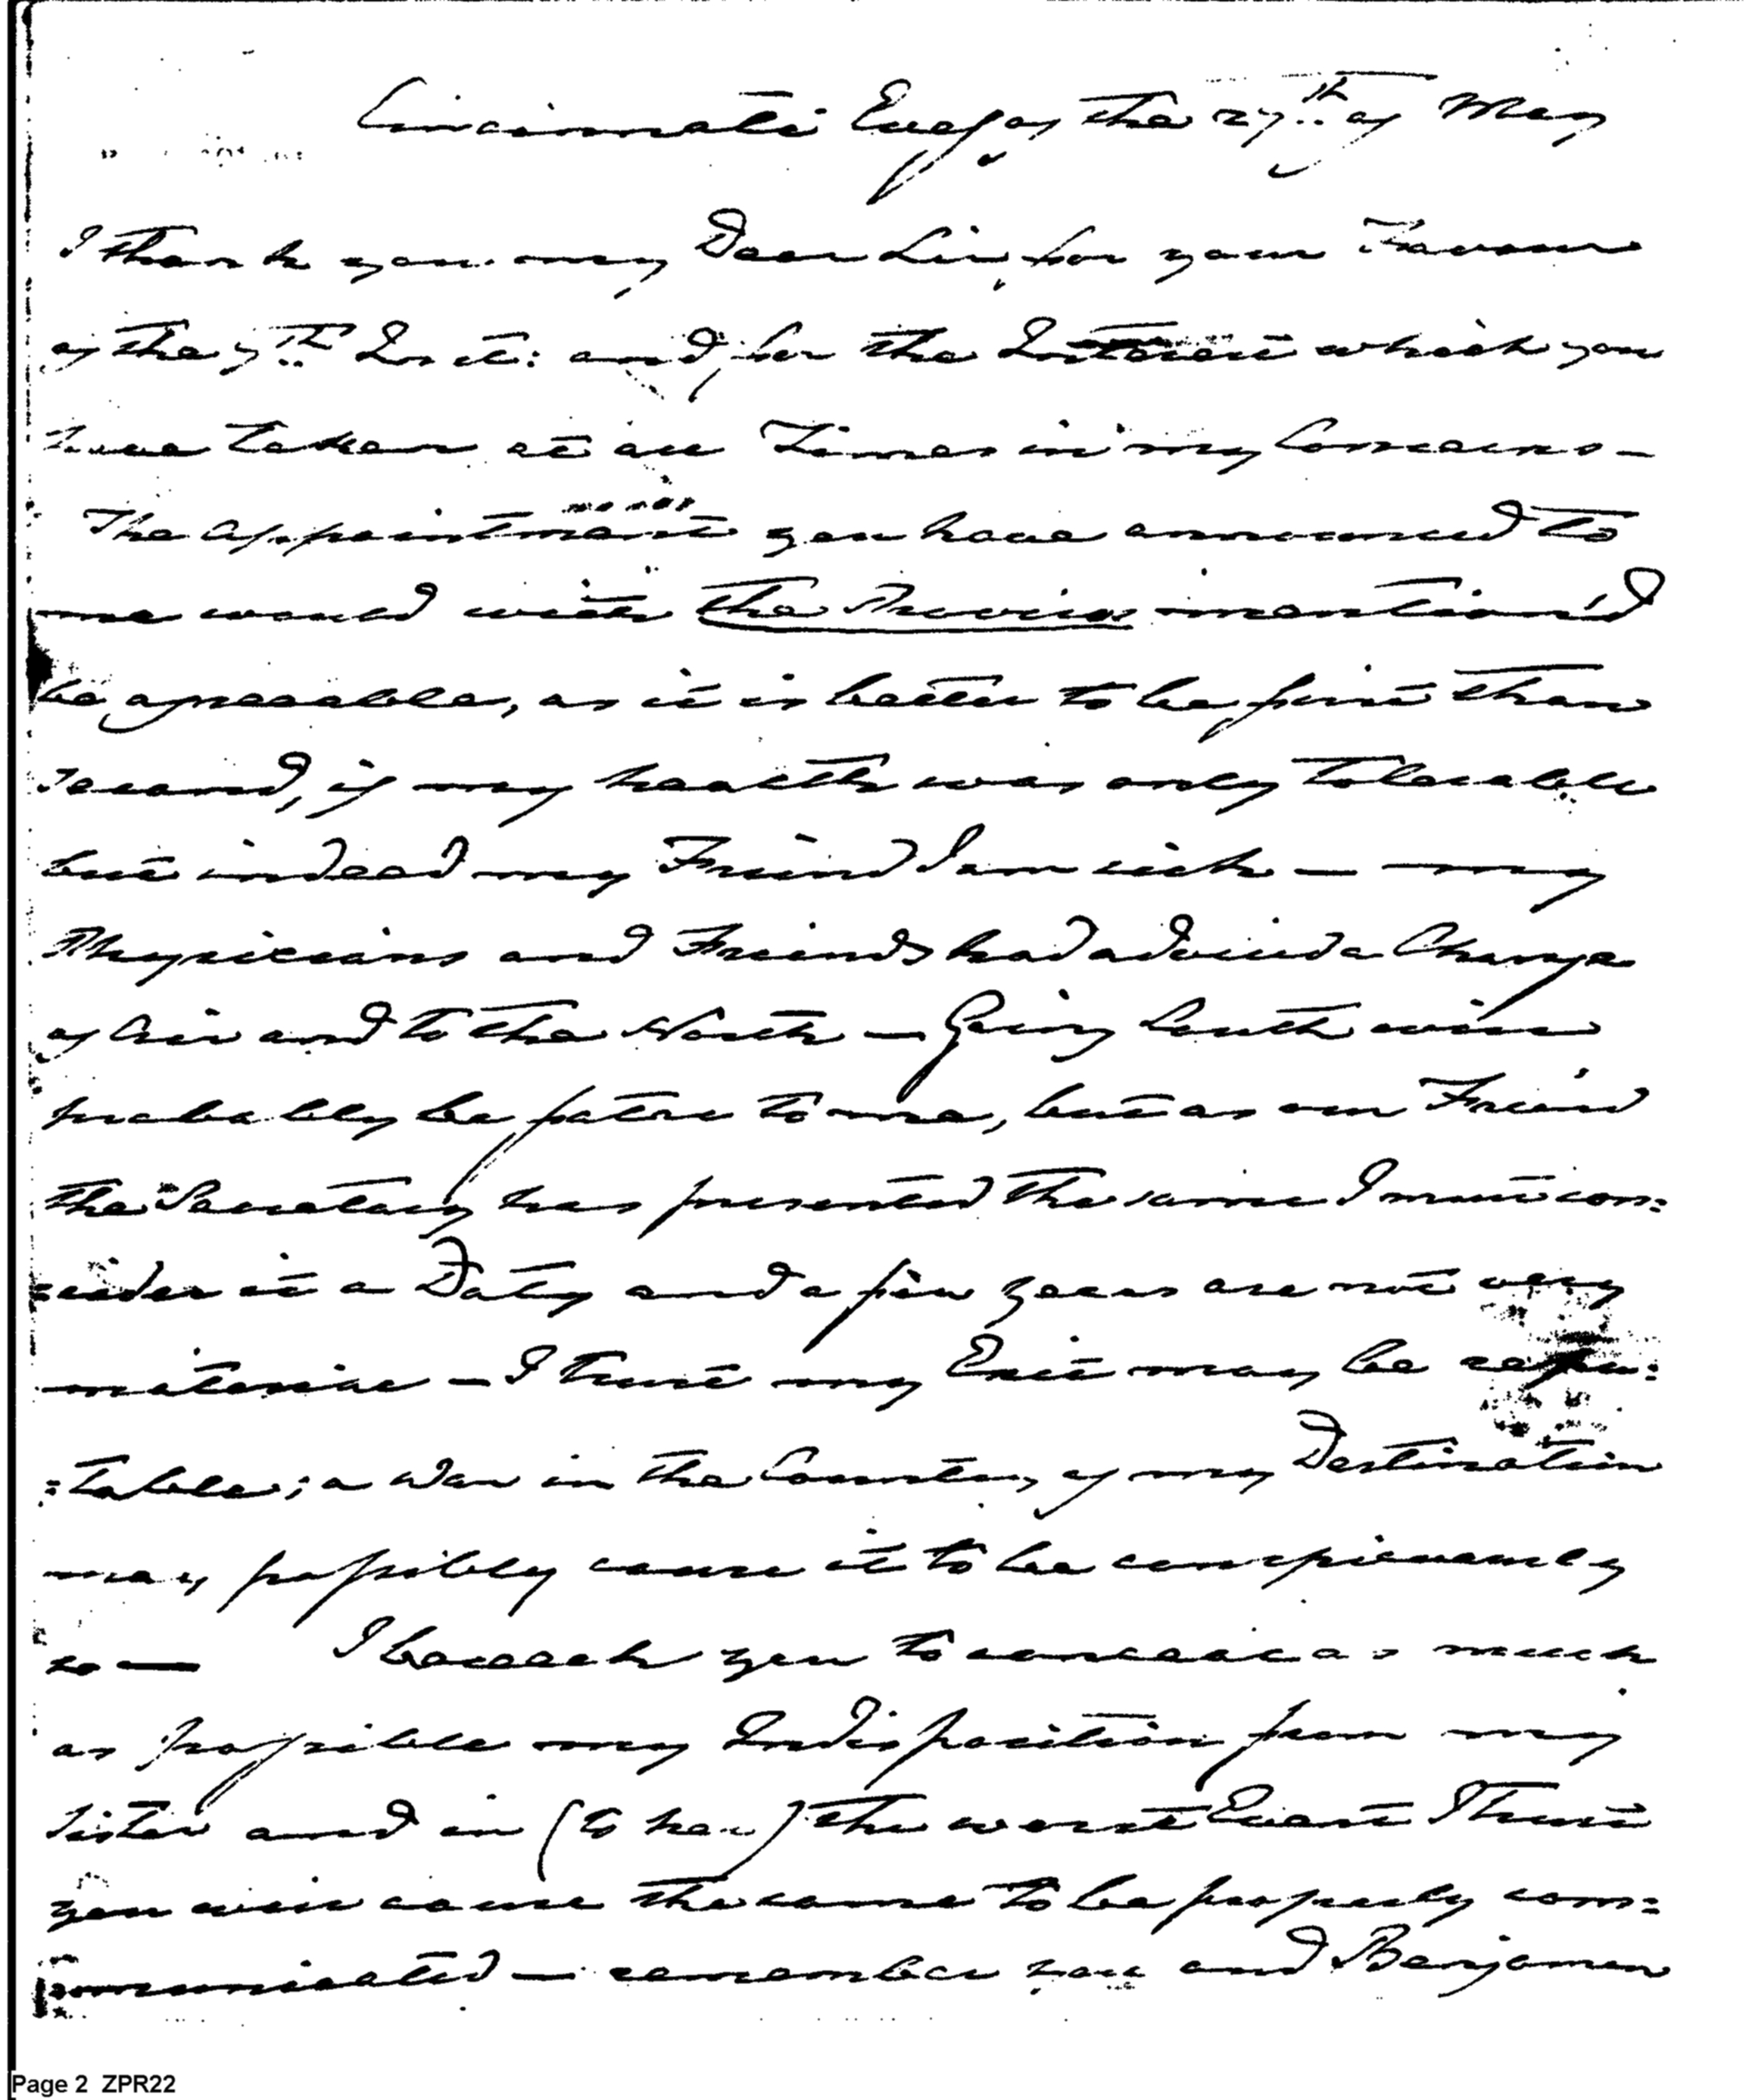 Cincinnati Eve,g of the 27th of May
I thank you my Dear Sir, for your Favour
of the 7th Inst: and for the Interest which you
have taken at all Times in my Concerns –
The appointment you have announced to
me would with the Proviso mention'd
be agreeable, as it is better to be first than
second, if my health was only tolerable
but indeed my Friend I am sick – my
Physicians and Friends had advised a Change
of Air and to the North – Going South will
probably be fatal to me, but as our Friend
the Secretary has presented the same I must con:
:sider it a Duty and a few years are not very
material – I trust my Exit may be repu:
:table; a War in the Country of my Destination
may possibly cause it to be conspicuously
so – I beseech you to conceal as much
as possible my Indisposition from my
Sister and in (to her) the worst Event I trust
you will cause the same to be properly com:
:municated – remember you and Benjamen
Page 2 ZPR22